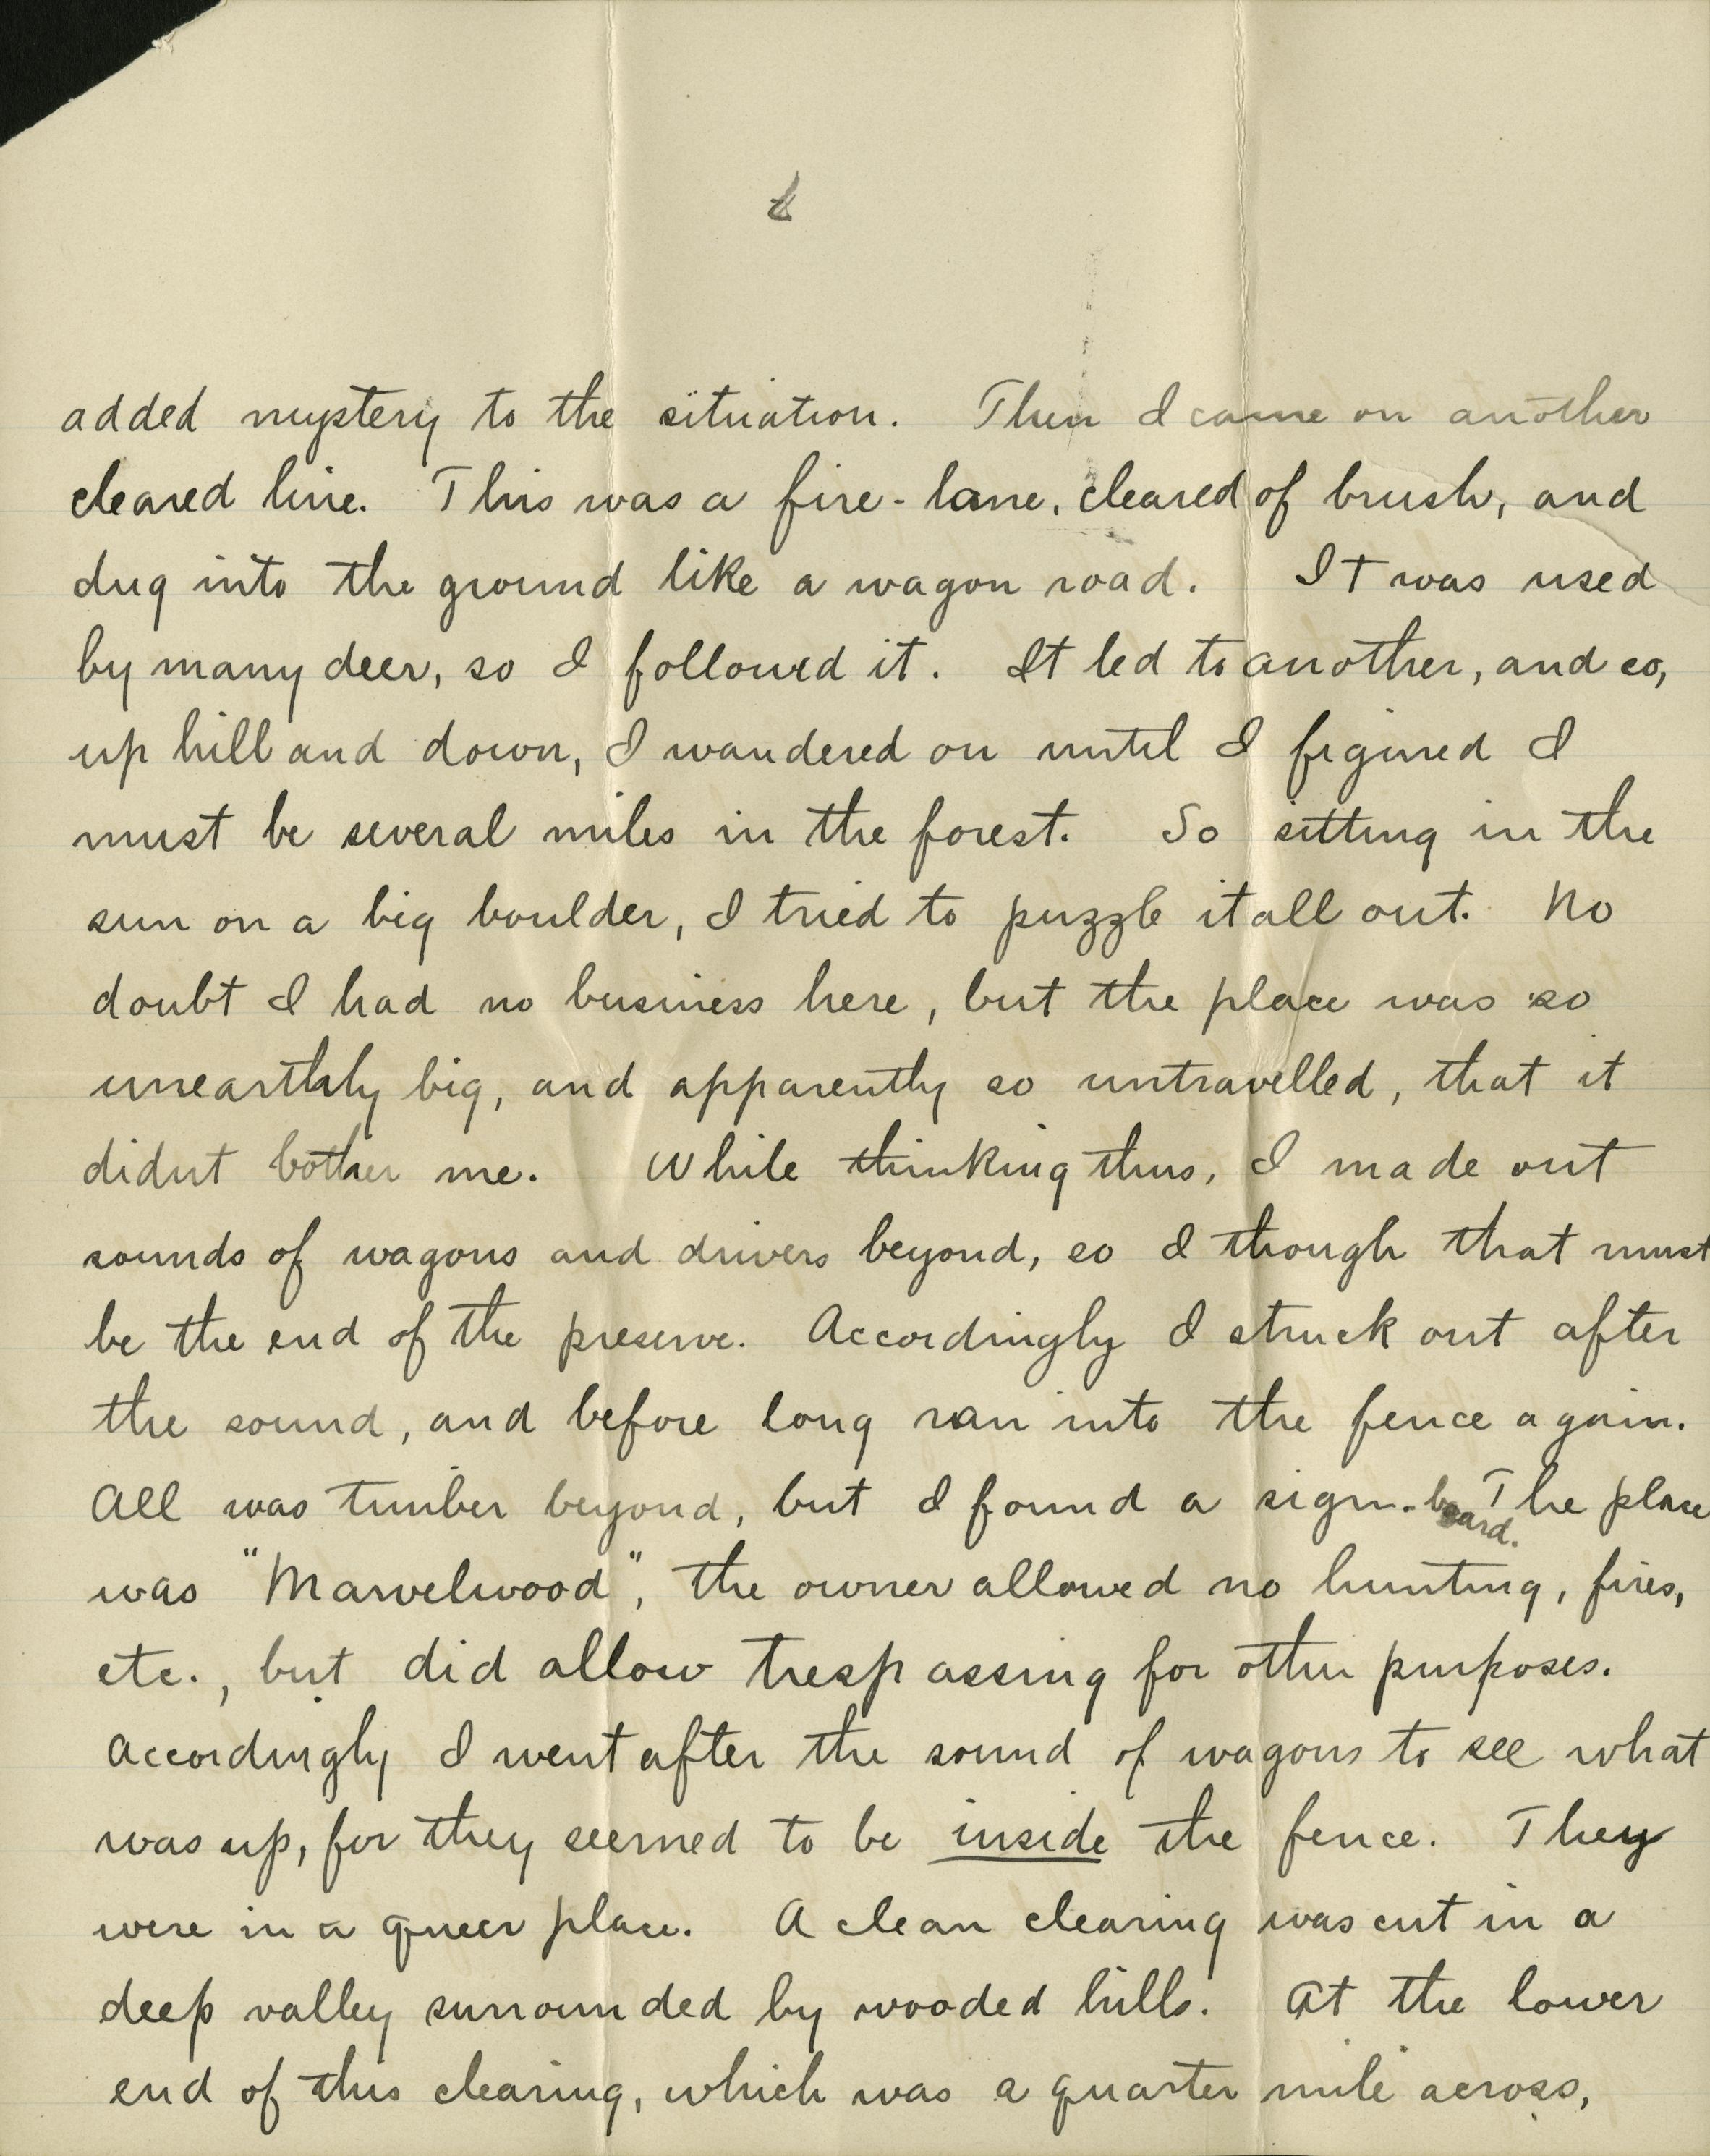 added mystery to the situation. Then I came on another
cleared line. This was a fire-lane, cleared of brush, and
dug into the ground like a wagon road. It was used
by many deer, so I followed it. It led to another, and so,
up hill and down, I wandered on until I figured I
must be several miles in the forest. So sitting in the
sun on a big boulder, I tried to puzzle it all out. No
doubt I had no business here, but the place was so
unearthly big, and apparently so untravelled, that it
didnt bother me. While thinking thus, I made out
sounds of wagons and drivers beyond, so I though that must
be the end of the preserve. Accordingly I struck out after
the sound, and before long ran into the fence again.
All was timber beyond, but I found a sign-board. The place
was "Marvelwood", the owner allowed no hunting, fires,
etc., but did allow trespassing for other purposes.
Accordingly I went after the sound of wagons to see what
was up, for they seemed to be inside the fence. They
were in a queer place. A clean clearing was cut in a
deep valley surrounded by wooded hills. At the lower
end of this clearing, which was a quarter mile across,